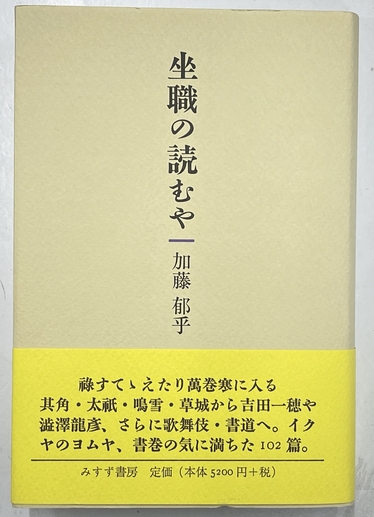 坐職の読むや
加藤郁乎
祿すてゝえたり萬巻寒に入る
其角・太祇・鳴雪・草城から吉田一穂や
澁澤龍彥、さらに歌舞伎・書道へ。イク
ヤのヨムヤ、書巻の気に満ちた102篇。
みすず書房 定価（本体5200円＋税）